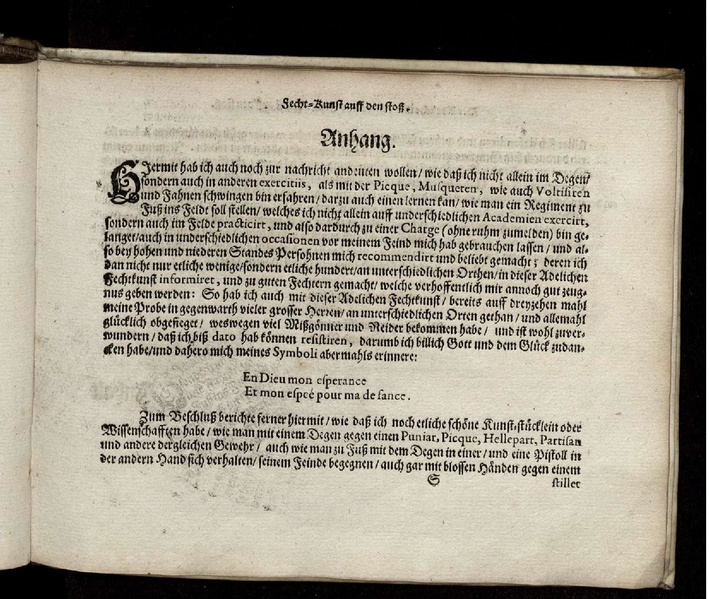 Fecht-Kunst auff den stoß.
Anhang.
HJermit hab ich auch noch zur nachricht andeuten wollen / wie daß ich nicht allein im Degen/
sondern auch in anderen exercitiis, als mit der Picque, Musqueten, wie auch Voltisiren
und Fahnen schwingen bin erfahren / darzu auch einen lernen kan / wie man ein Regiment zu
Fuß ins Feldt soll stellen / welches ich nicht allein auff underschiedlichen Academien exercirt,
sondern auch im Felde practicirt, und also dardurch zu einer Charge (ohne ruhm zumelden) bin ge-
langet / auch in underschiedlichen occasionen vor meinem Feind mich hab gebrauchen lassen / und al-
so bey hohen und niederen Standes Persohnen mich recommendirt und beliebt gemacht; deren ich
dan nicht nur etliche wenige / sondern etliche hundert / an unterschiedlichen Orthen / in dieser Adelichen
Fechtkunst informiret, und zu guten Fechtern gemacht / welche verhoffentlich mir annoch gut zeug-
nus geben werden: So hab ich auch mit dieser Adelichen Fechtkunst / bereits auff dreyzehen mahl
meine Probe in gegenwarth vieler grosser Herren / an unterschiedlichen Orten gethan / und allemahl
glücklich obgesieget / weswegen viel Mißgönner und Neider bekommen habe / und ist wohl zuver-
wundern / daß ich biß dato hab können resistiren, darumb ich billich Gott und dem Glück zudan-
cken habe / und dahero mich meines Symboli abermahls erinnere:
En Dieu mon esperance
Et mon espeé pour ma defance.
Zum Beschluß berichte ferner hiermit / wie daß ich noch etliche schöne Kunst-stücklein oder
Wissenschafften habe / wie man mit einem Degen gegen einen Puniar, Picque, Hellepart, Partisan
und andere dergleichen Gewehr / auch wie man zu Fuß mit dem Degen in einer / und eine Pistoll in
der andern Hand sich verhalten / seinem Feinde begegnen / auch gar mit blossen Händen gegen einem
S stillet